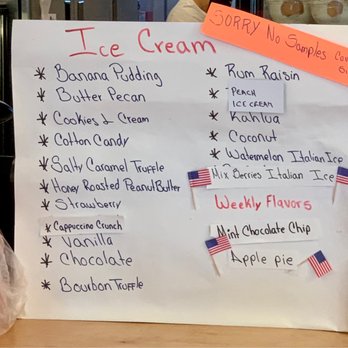 SORRY No Samples
Ice Cream
* Banana Pudding
* Butter Pecan
* Cookies & Cream
* Cotton Candy
* Salty Caramel Truffle
* Honey Roasted Peanut Butter
* Strawberry
* Cappuccino Crunch
* Vanilla
* Chocolate
* Bourbon Truffle
* Rum Raisin
* PEACH
ICE CREAM
* Kahlua
* Coconut
* Watermelon Italian Ice
Mix Berries Italian Ice
Weekly Flavors
Mint Chocolate Chip
Apple pie